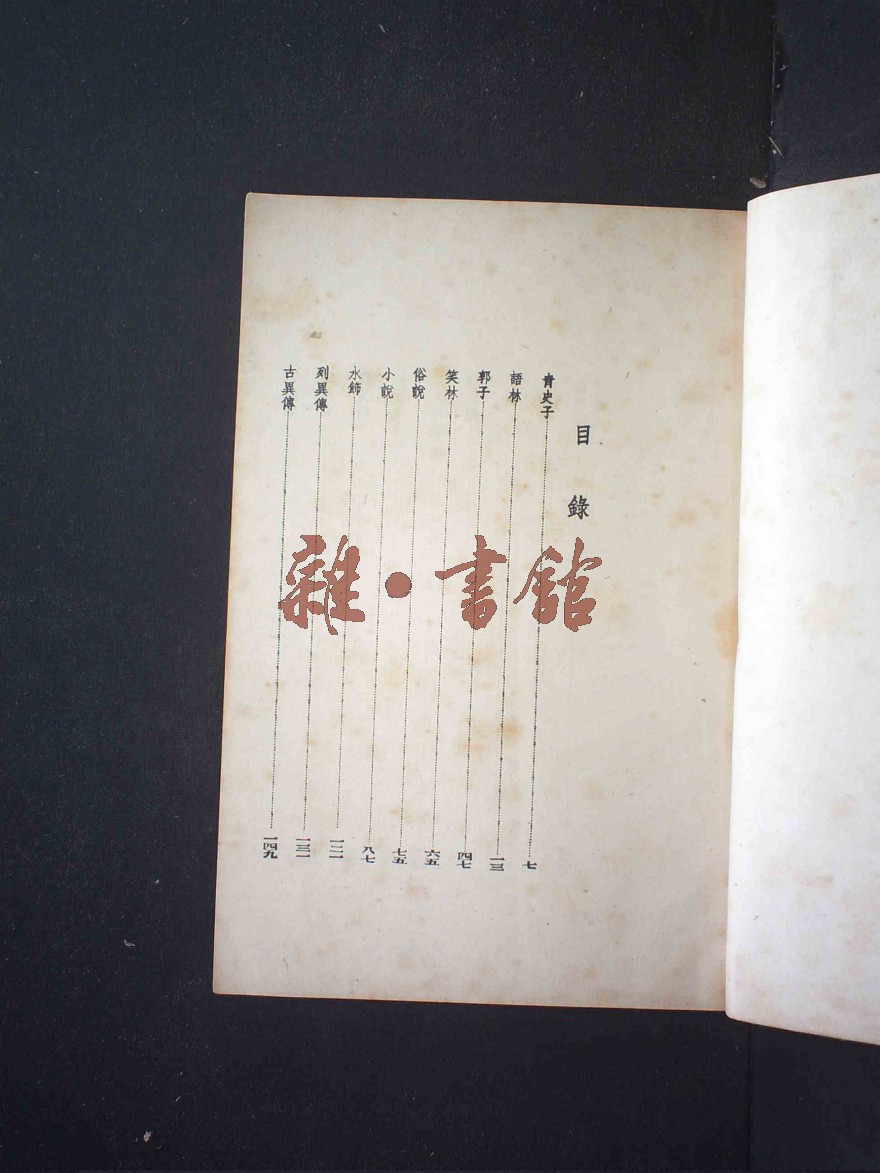 目錄
青史子 七
語林 一三
郭子 四七
笑林 六五
俗說 七五
小說 八七
水飾 一二一
列異傳 一三一
古異傳 一四九
雜·書館